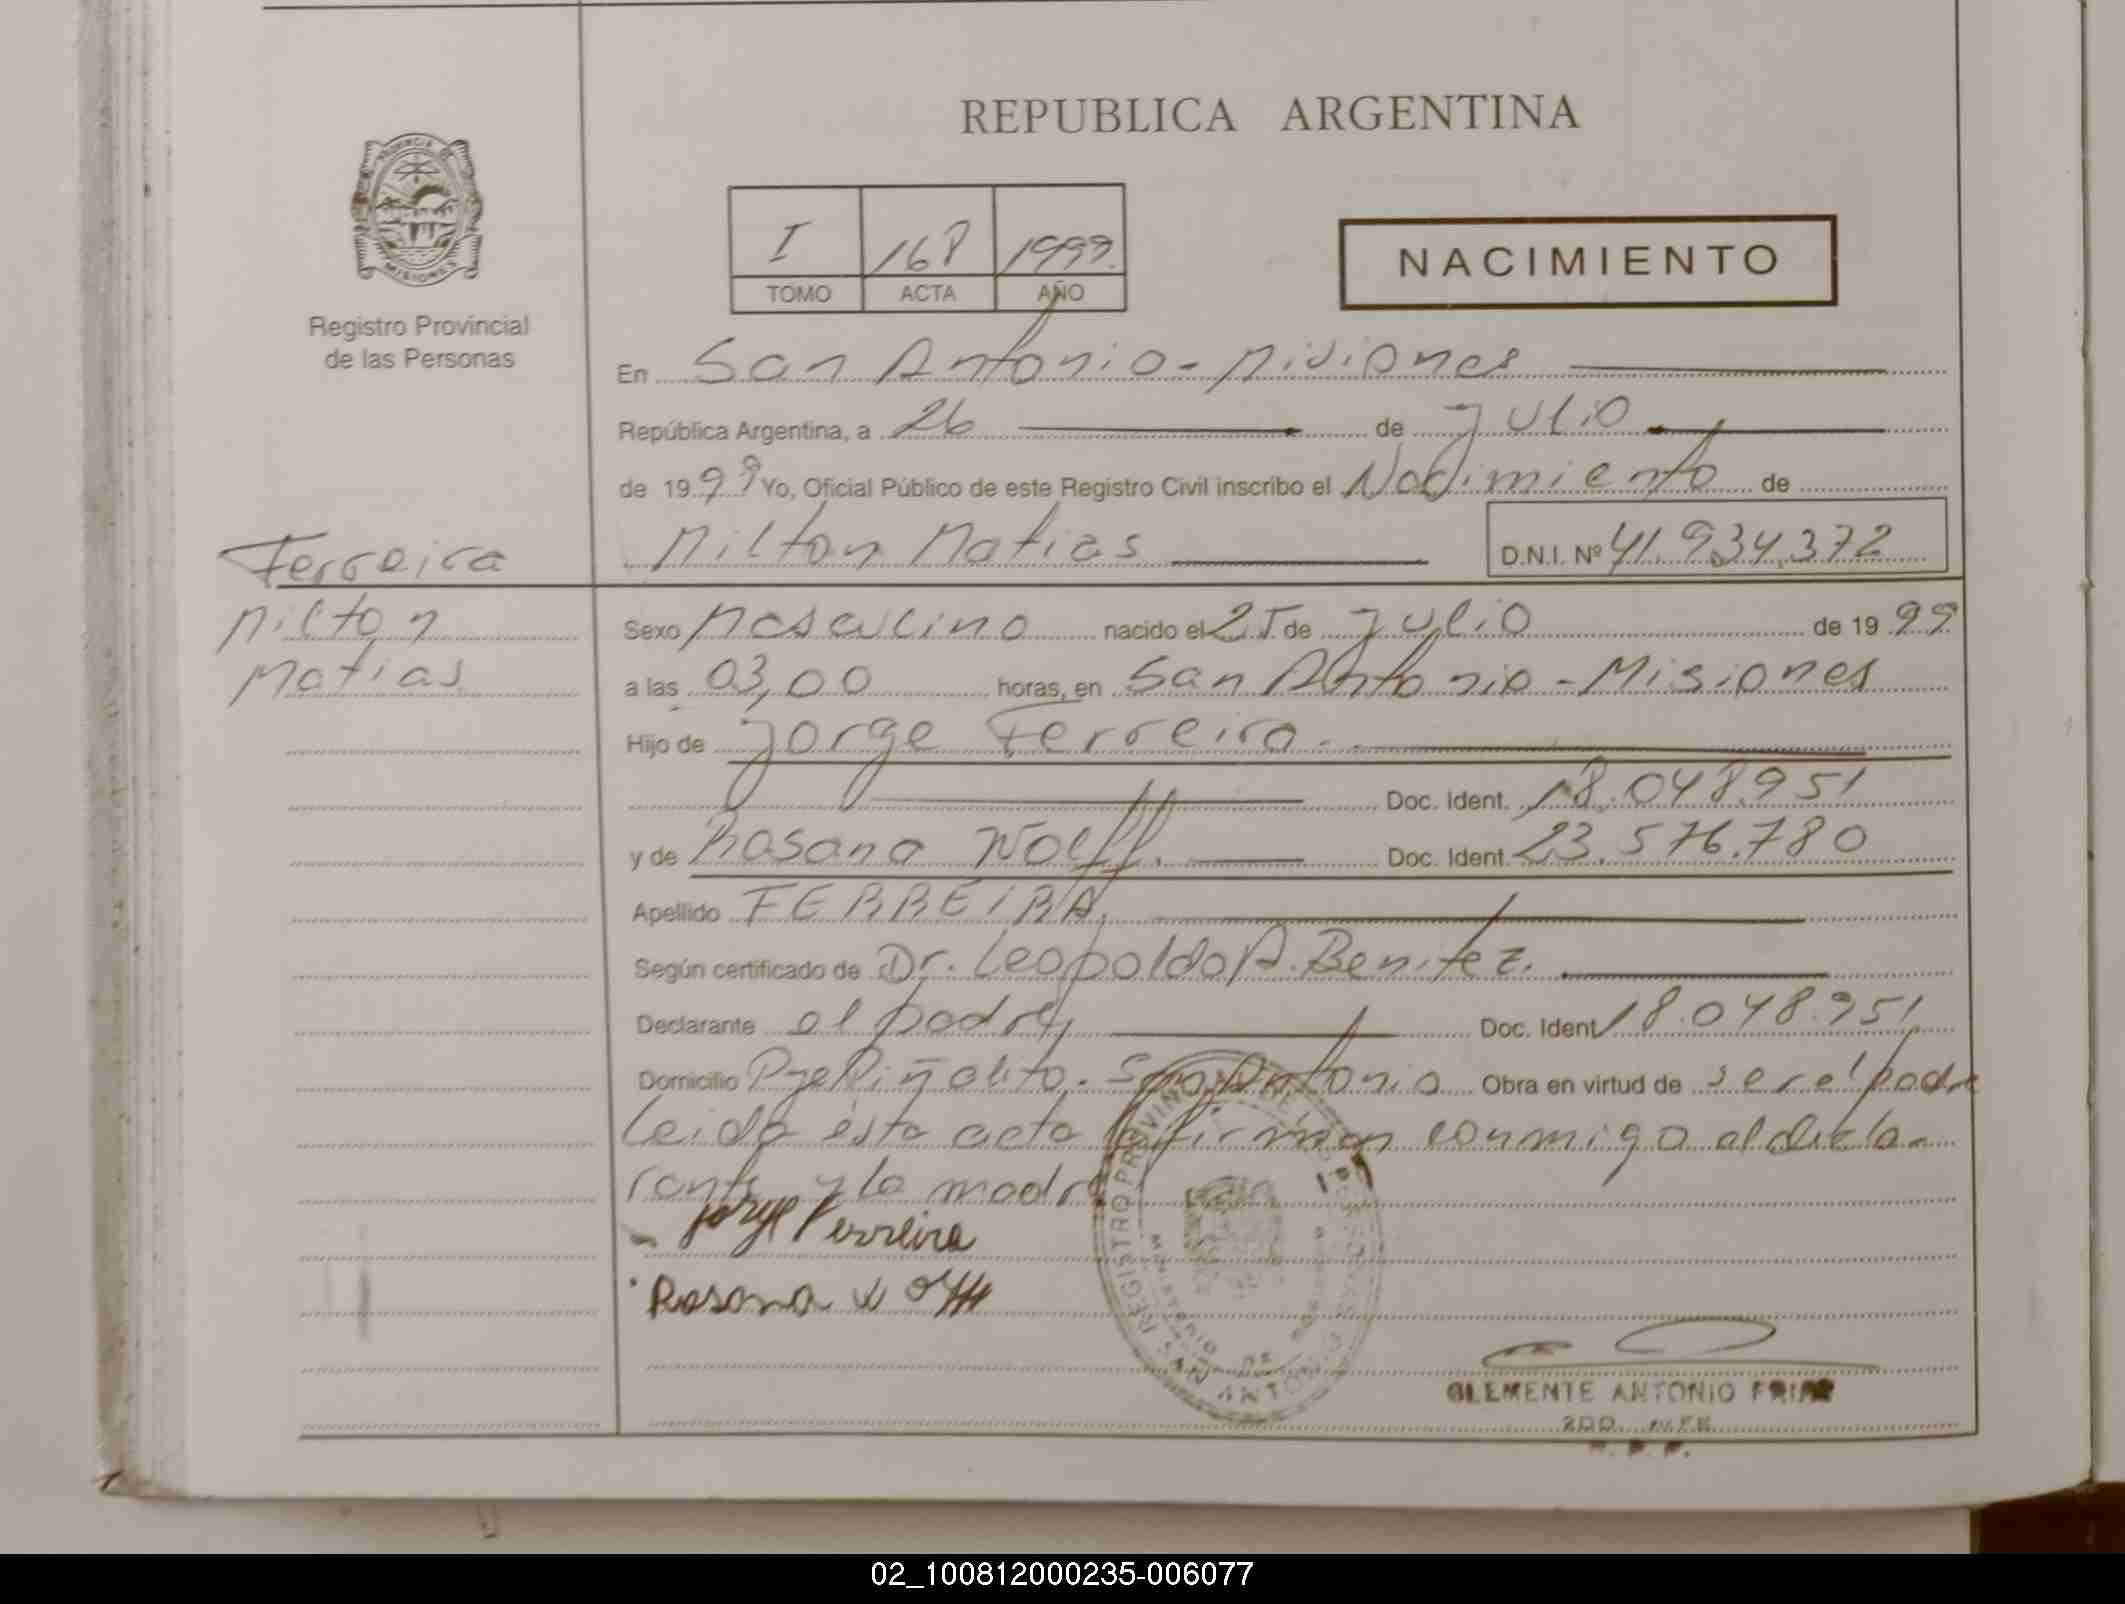 REPUBLICA ARGENTINA
PROVINCIA DE
MISIONES
Registro Provincial
de las Personas
I 168 1999
TOMO ACTA AÑO
NACIMIENTO
En San Antonio - Misiones
República Argentina, a 26 de Julio
de 1999 Yo, Oficial Público de este Registro Civil inscribo el Nacimiento de
Milton Matias D.N.I. Nº 41.934.372
Ferreira
Milton
Matias
Sexo Masculino nacido el 25 de Julio de 1999
a las 03,00 horas, en San Antonio - Misiones
Hijo de Jorge Ferreira.
Doc. Ident. 18.048.951
y de Rosana Wolff. Doc. Ident. 23.576.780
Apellido FERREIRA,
Según certificado de Dr. Leopoldo A. Benitez.
Declarante el padre, Doc. Ident 18.048.951
Domicilio Pje Piñalito. San Antonio Obra en virtud de ser el padre
Leida ésta acta la firman conmigo el decla-
rante y la madre
Jorge Ferreira
Rosana Wolff
REGISTRO PROVINCIAL DE LAS PERSONAS
MINISTERIO DE
SAN ANTONIO
CLEMENTE ANTONIO
02_100812000235-006077